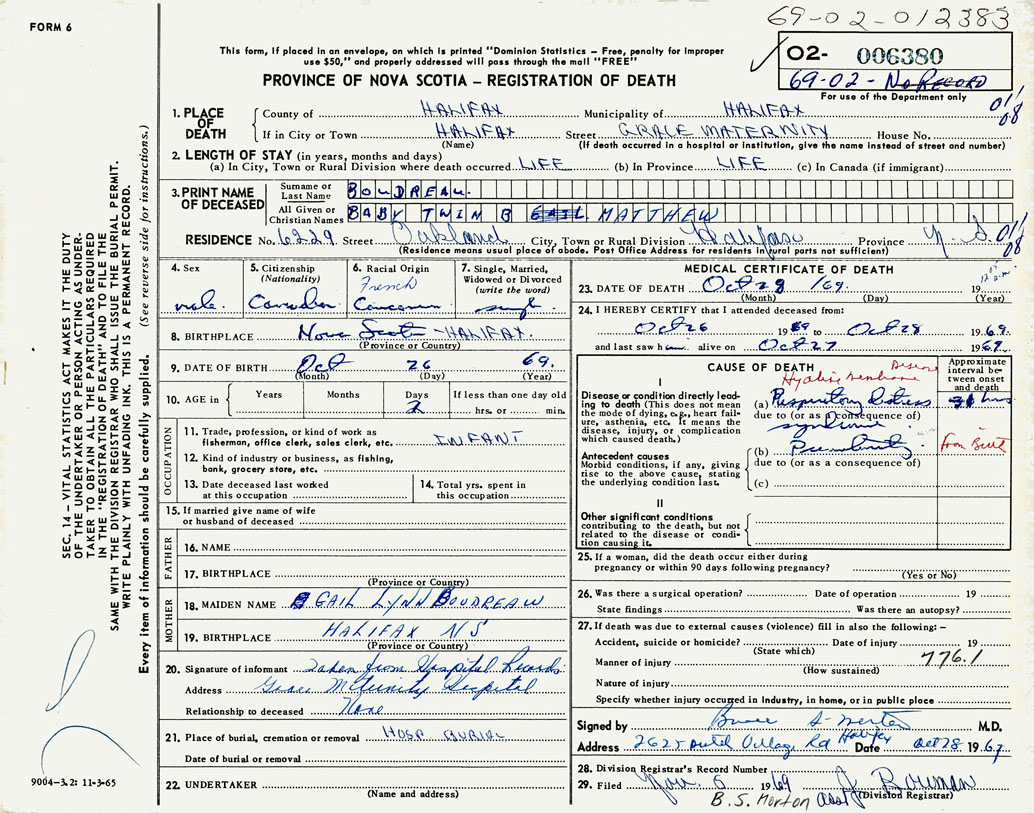 FORM 6
69-02-012383
This form, if placed in an envelope, on which is printed "Dominion Statistics – Free, penalty for improper
use $50," and properly addressed will pass through the mail "FREE"
PROVINCE OF NOVA SCOTIA – REGISTRATION OF DEATH
02- 006380
69-02- NO RECORD
For use of the Department only
01/08
1. PLACE OF DEATH
County of HALIFAX Municipality of HALIFAX
If in City or Town HALIFAX Street GRACE MATERNITY House No.
(Name) (If death occurred in a hospital or institution, give the name instead of street and number)
2. LENGTH OF STAY (in years, months and days)
(a) In City, Town or Rural Division where death occurred LIFE (b) In Province LIFE (c) In Canada (if immigrant)
3. PRINT NAME OF DECEASED
Surname or Last Name BOUDREAU.
All Given or Christian Names BABY TWIN B GAIL MATTHEW
RESIDENCE No. 6229 Street Oakland City, Town or Rural Division Halifax Province N.S. 01/08
(Residence means usual place of abode. Post Office Address for residents in rural parts not sufficient)
4. Sex
male
5. Citizenship (Nationality)
Canadian
6. Racial Origin
French
7. Single, Married, Widowed or Divorced (write the word)
single
8. BIRTHPLACE Nova Scotia - HALIFAX
(Province or Country)
9. DATE OF BIRTH Oct 26 69.
(Month) (Day) (Year)
10. AGE in Years Months Days 2 If less than one day old hrs. or min.
OCCUPATION
11. Trade, profession, or kind of work as fisherman, office clerk, sales clerk, etc. INFANT
12. Kind of industry or business, as fishing, bank, grocery store, etc.
13. Date deceased last worked at this occupation
14. Total yrs. spent in this occupation
15. If married give name of wife or husband of deceased
FATHER
16. NAME
17. BIRTHPLACE
(Province or Country)
MOTHER
18. MAIDEN NAME GAIL LYNN BOUDREAU
19. BIRTHPLACE HALIFAX NS
(Province or Country)
20. Signature of informant Taken from Hospital Records.
Address Grace Maternity Hospital
Relationship to deceased None
21. Place of burial, cremation or removal HOSP BURIAL
Date of burial or removal
22. UNDERTAKER
(Name and address)
MEDICAL CERTIFICATE OF DEATH
23. DATE OF DEATH Oct 28 /69. 19
(Month) (Day) (Year)
24. I HEREBY CERTIFY that I attended deceased from:
Oct 26 1969 to Oct 28 1969.
and last saw him alive on Oct 27 1969.
CAUSE OF DEATH
Approximate interval between onset and death
Hyaline Membrane Disease
I
Disease or condition directly leading to death (This does not mean the mode of dying, e.g., heart failure, asthenia, etc. It means the disease, injury, or complication which caused death.)
(a) Respiratory Distress hrs
due to (or as a consequence of)
syndrome
Antecedent causes
Morbid conditions, if any, giving rise to the above cause, stating the underlying condition last.
(b) Prematurity from Birth
due to (or as a consequence of)
(c)
II
Other significant conditions
contributing to the death, but not related to the disease or condition causing it.
25. If a woman, did the death occur either during pregnancy or within 90 days following pregnancy?
(Yes or No)
26. Was there a surgical operation? Date of operation 19
State findings Was there an autopsy?
27. If death was due to external causes (violence) fill in also the following: –
Accident, suicide or homicide? Date of injury 19
(State which)
Manner of injury 776.1
(How sustained)
Nature of injury
Specify whether injury occurred in industry, in home, or in public place
Signed by Bruce S. Morton M.D.
Address 2625 Dutch Village Rd Halifax Date Oct 28 1969
28. Division Registrar's Record Number
29. Filed Nov. 5 1969 J Bowman
(Division Registrar)
B.S. Morton
SEC. 14 – VITAL STATISTICS ACT MAKES IT THE DUTY
OF THE UNDERTAKER OR PERSON ACTING AS UNDER-
TAKER TO OBTAIN ALL THE PARTICULARS REQUIRED
IN THE "REGISTRATION OF DEATH" AND TO FILE THE
SAME WITH THE DIVISION REGISTRAR WHO SHALL ISSUE THE BURIAL PERMIT.
WRITE PLAINLY WITH UNFADING INK. THIS IS A PERMANENT RECORD.
Every item of information should be carefully supplied. (See reverse side for instructions.)
9004-3.2: 11-3-65